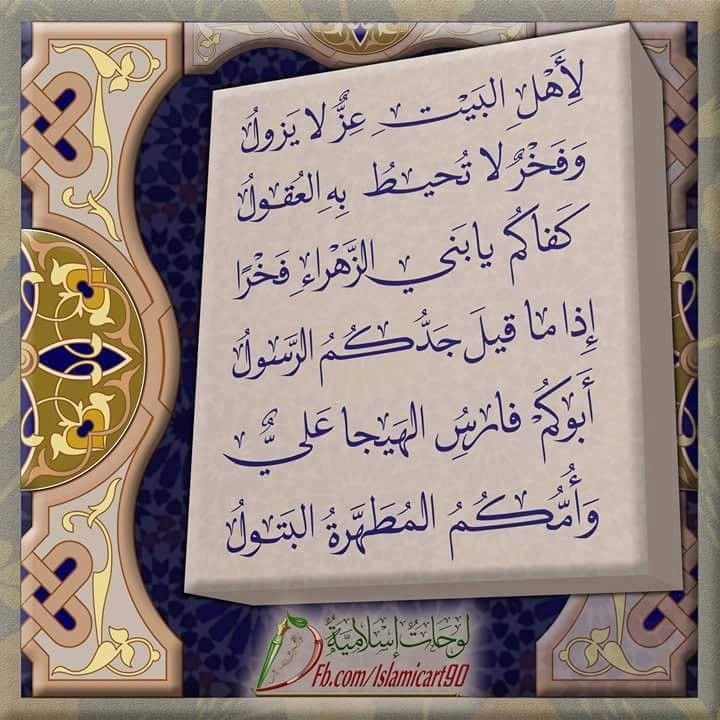 لِأَهْلِ البَيْتِ عِزٌّ لا يَزولُ
وَفَخْرٌ لا تُحيطُ بِهِ العُقولُ
كَفاكُم يا بَني الزَّهْراءِ فَخْرًا
إِذا ما قيلَ جَدُّكُمُ الرَّسولُ
أَبوكُمْ فارِسُ الهَيجا عَليٌّ
وَأُمُّكُمُ المُطَهَّرَةُ البَتولُ
لوحات إسلامية
Fb.com/Islamicart90